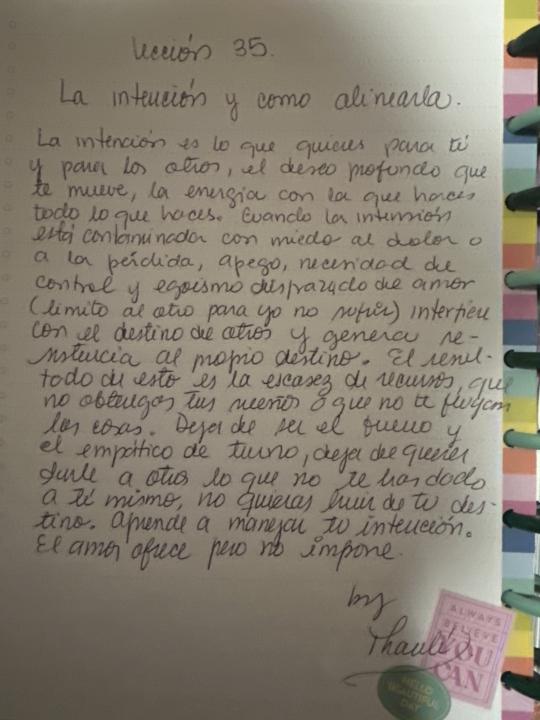 Lección 35.
La intención y como alinearla.
La intención es lo que quieres para tí
y para los otros, el deseo profundo que
te mueve, la energía con la que haces
todo lo que haces. Cuando la intensión
está contaminada con miedo al dolor o
a la pérdida, apego, necesidad de
control y egoísmo disfrazado de amor
(limito al otro para yo no sufrir) interfiere
con el destino de otros y genera re-
sistencia al propio destino. El resul-
tado de esto es la escasez de recursos, que
no obtengas tus sueños o que no te fluyan
las cosas. Deja de ser el bueno y
el empático de turno, deja de querer
darle a otros lo que no te has dado
a tí mismo, no quieras huir de tu des-
tino. Aprende a manejar tu intención.
El amor ofrece pero no impone.
by
ALWAYS
BELIEVE
YOU
CAN
HELLO
BEAUTIFUL
DAY